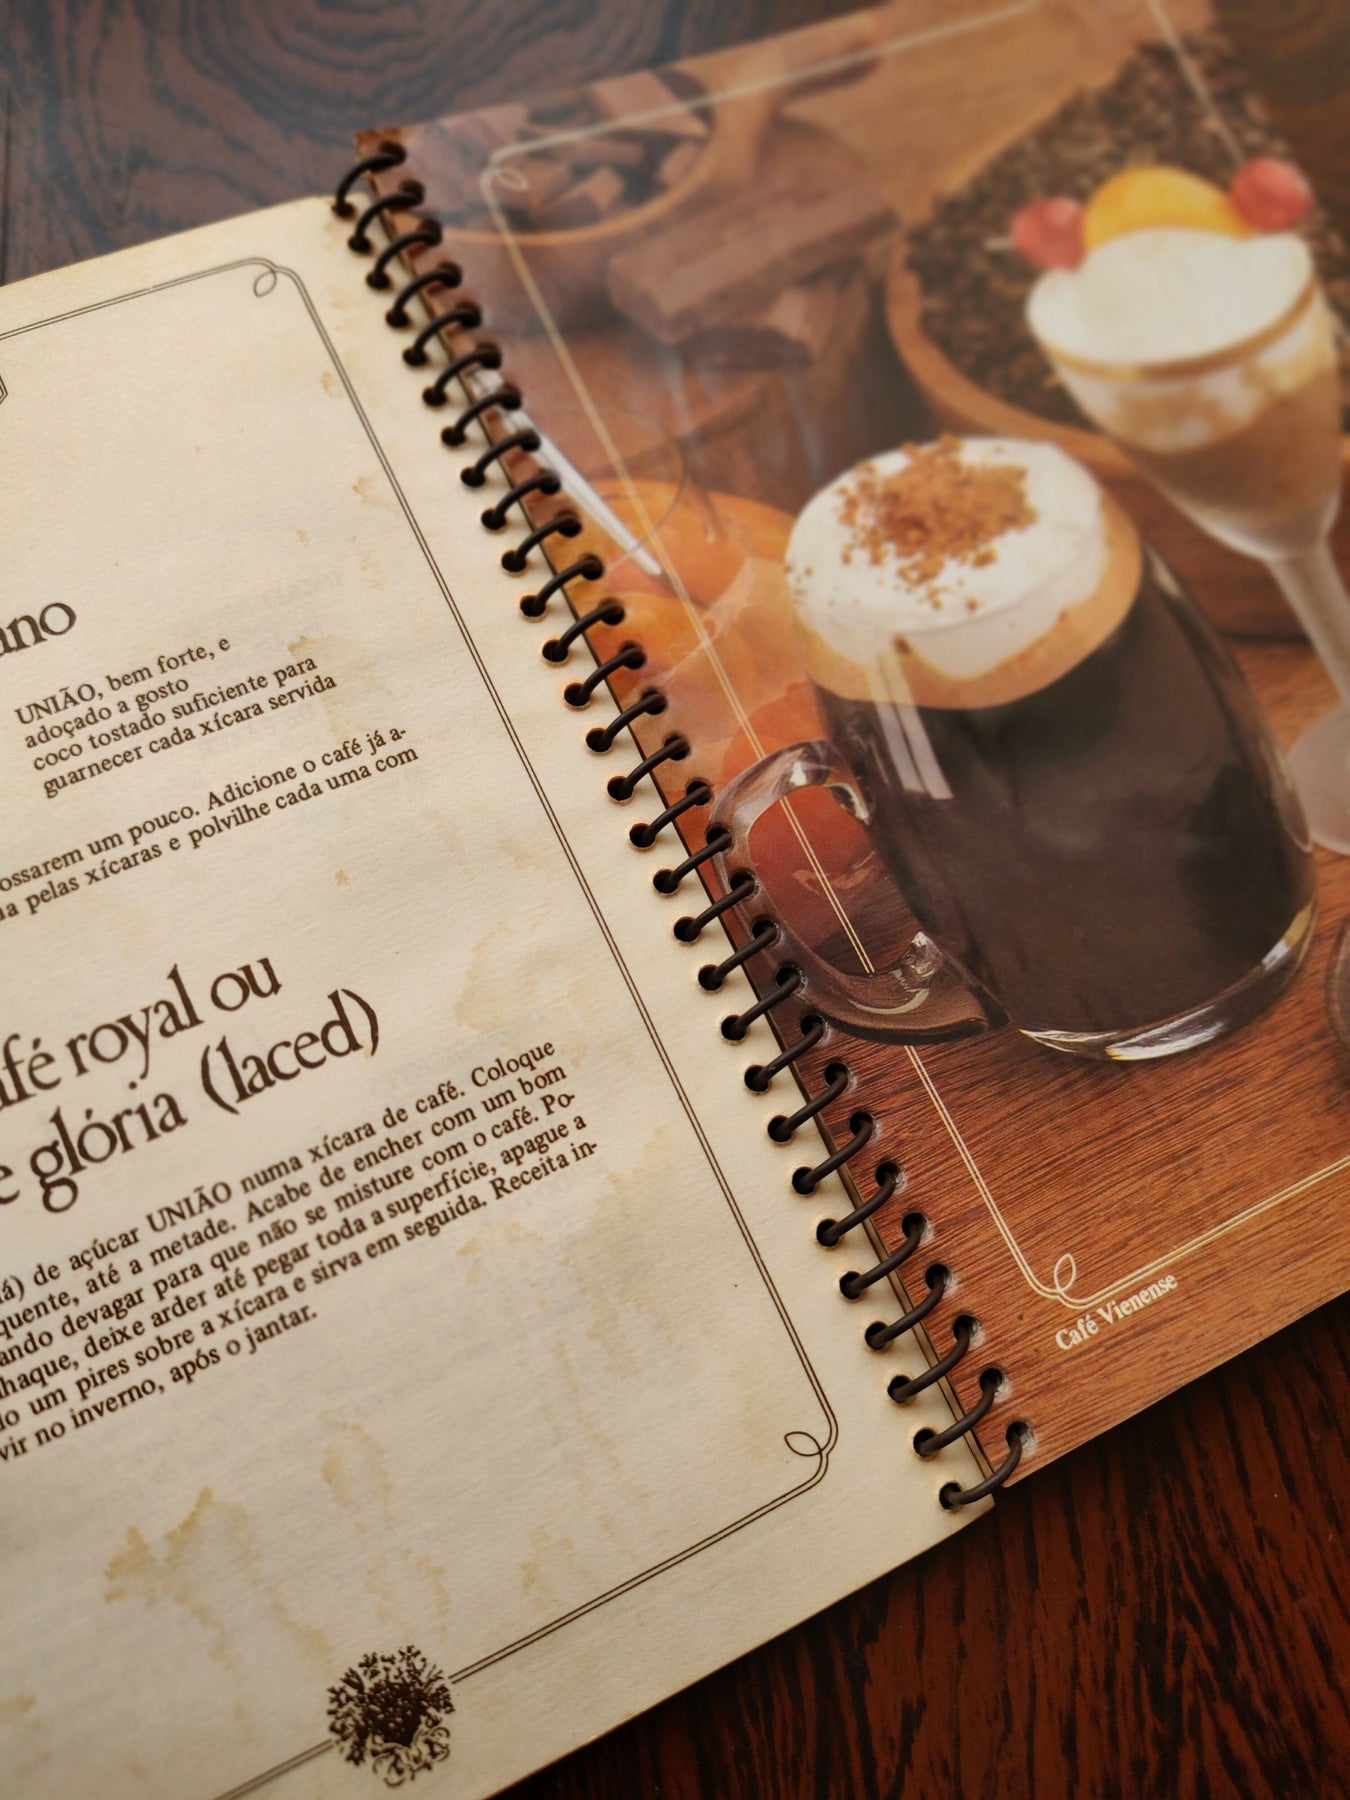 UNIÃO, bem forte, e
adoçado a gosto
coco tostado suficiente para
guarnecer cada xícara servida
um pouco. Adicione o café já a-
pelas xícaras e polvilhe cada uma com
royal ou
glória (laced)
de açúcar UNIÃO numa xícara de café. Coloque
até a metade. Acabe de encher com um bom
devagar para que não se misture com o café. Po-
deixe arder até pegar toda a superfície, apague a
um pires sobre a xícara e sirva em seguida. Receita in-
no inverno, após o jantar.
Café Vienense